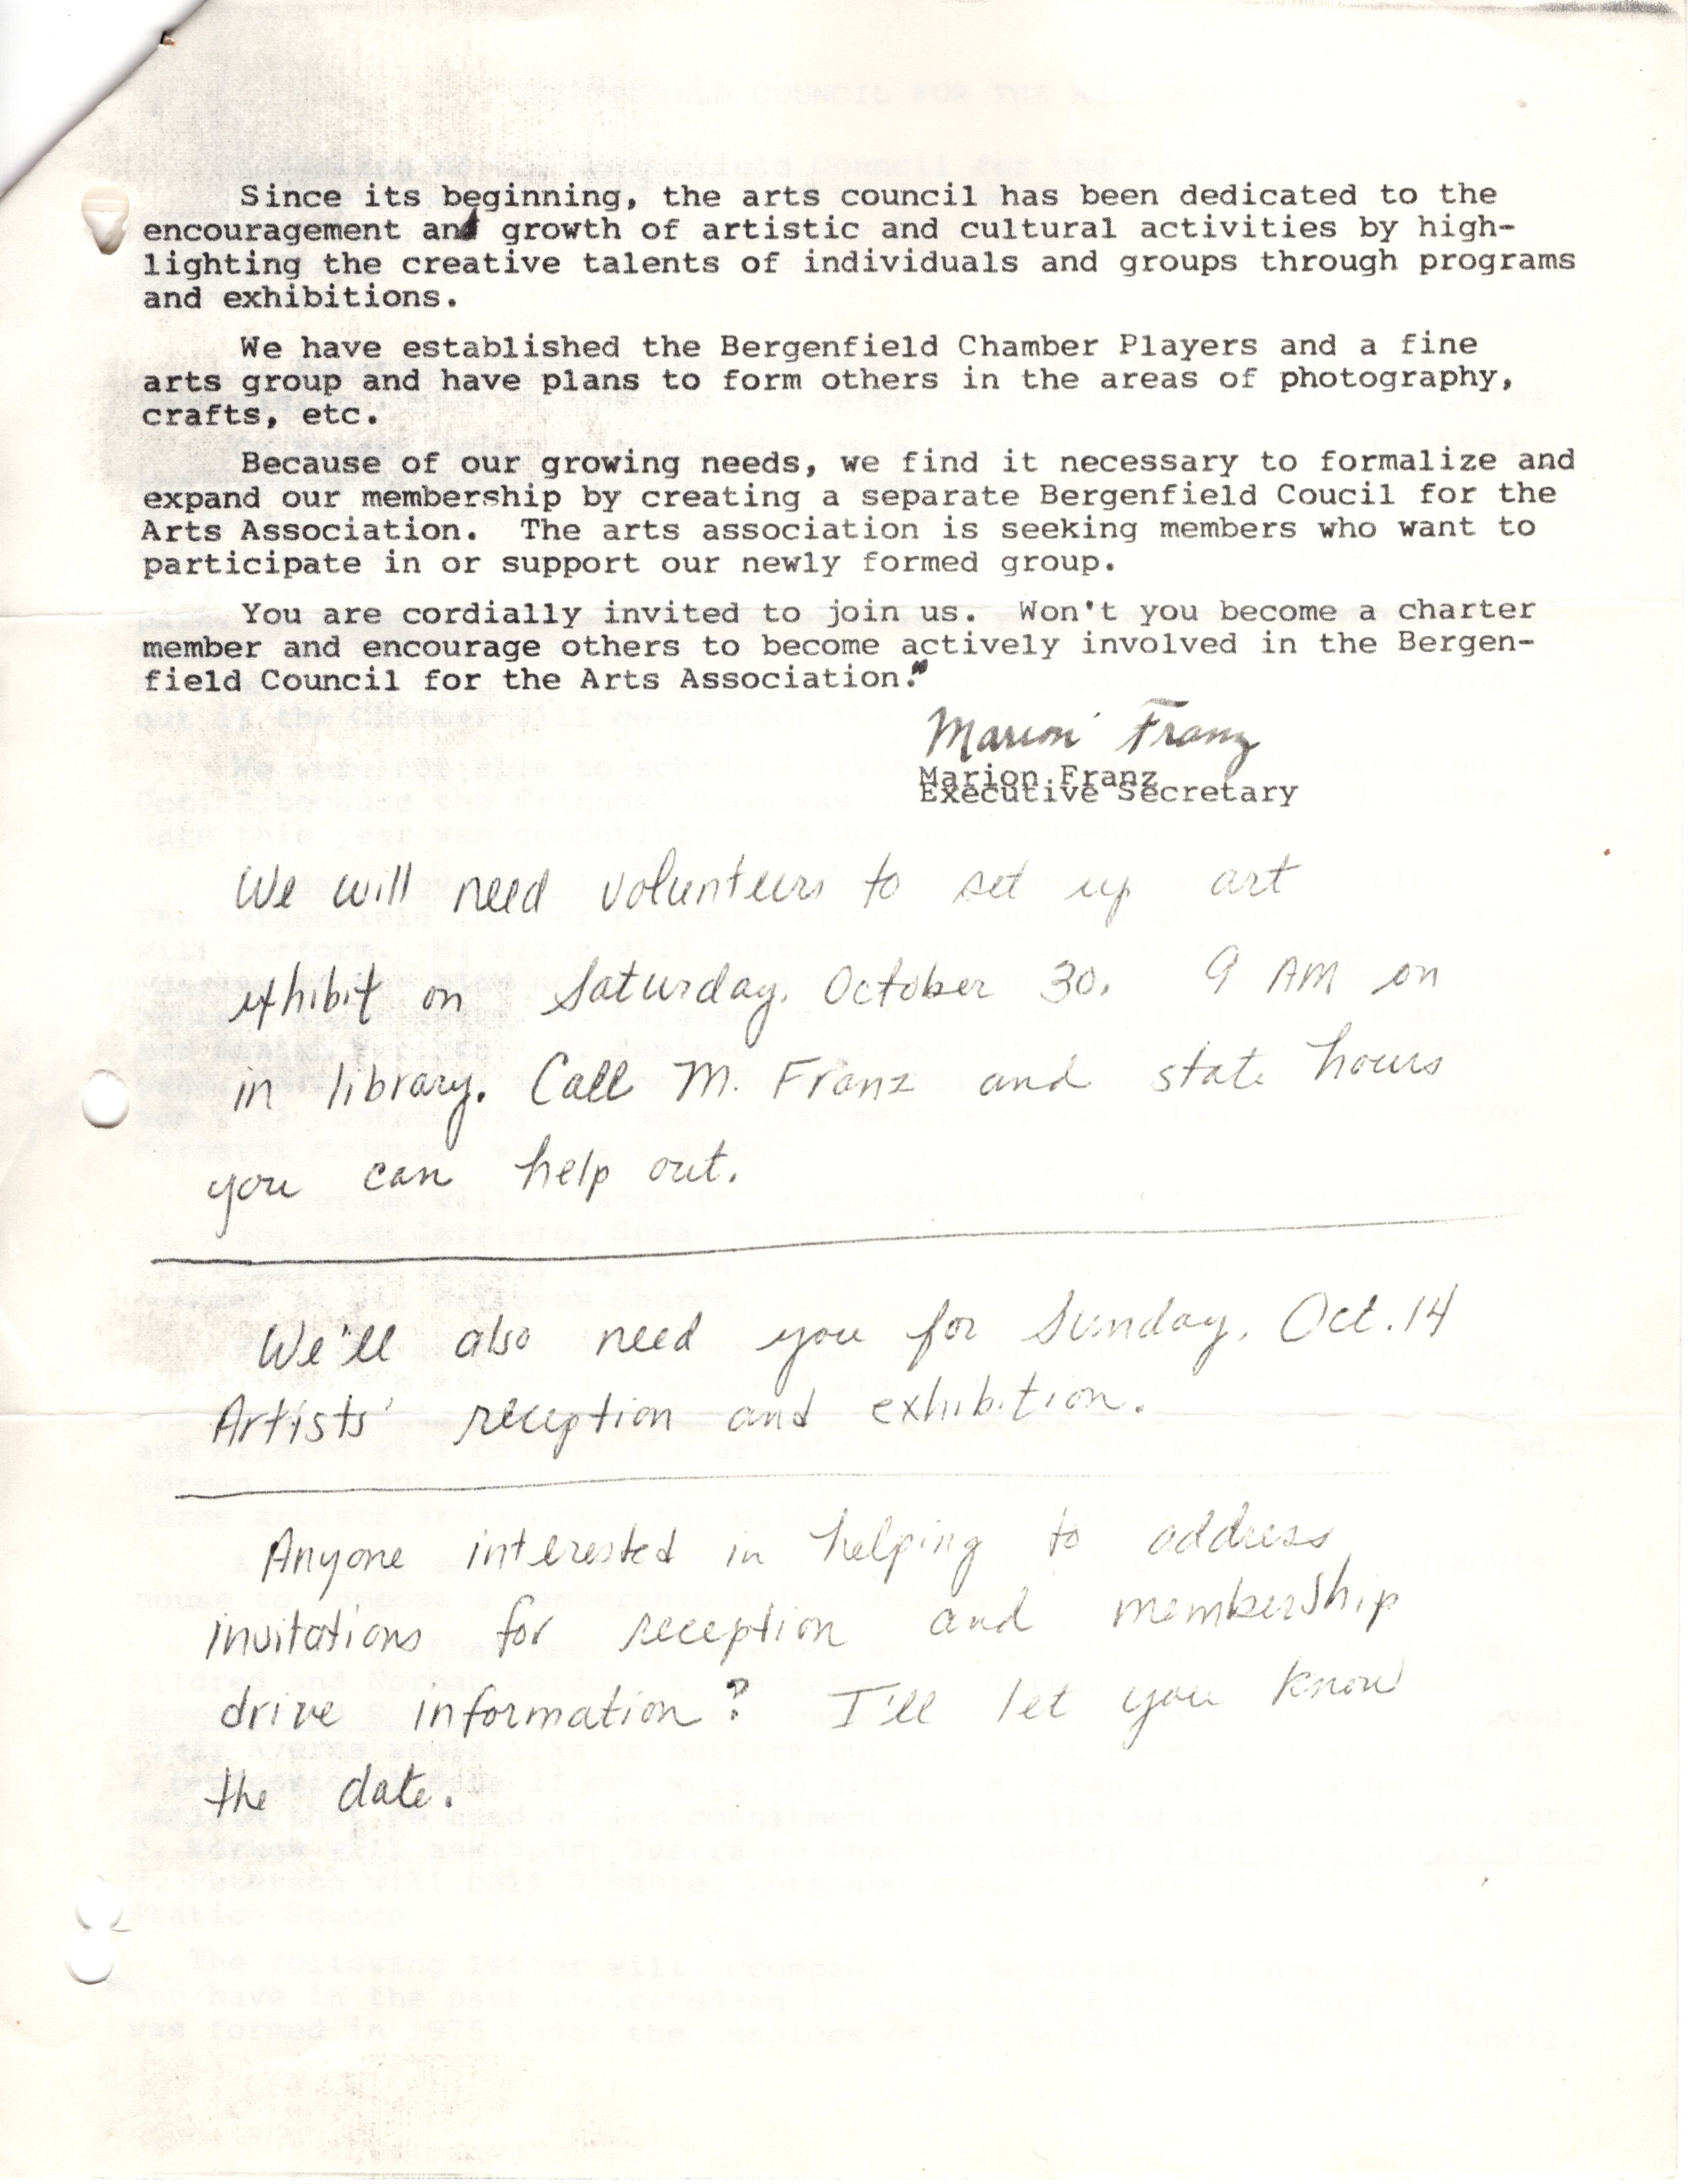 Since its beginning, the arts council has been dedicated to the
encouragement and growth of artistic and cultural activities by high-
lighting the creative talents of individuals and groups through programs
and exhibitions.
We have established the Bergenfield Chamber Players and a fine
arts group and have plans to form others in the areas of photography,
crafts, etc.
Because of our growing needs, we find it necessary to formalize and
expand our membership by creating a separate Bergenfield Coucil for the
Arts Association.  The arts association is seeking members who want to
participate in or support our newly formed group.
You are cordially invited to join us.  Won't you become a charter
member and encourage others to become actively involved in the Bergen-
field Council for the Arts Association."
Marion Franz
Marion Franz
Executive Secretary
We will need volunteers to set up art
exhibit on Saturday, October 30, 9 AM on
in library. Call M. Franz and state hours
you can help out.
We'll also need you for Sunday, Oct. 14
Artists' reception and exhibition.
Anyone interested in helping to address
invitations for reception and membership
drive information? I'll let you know
the date.